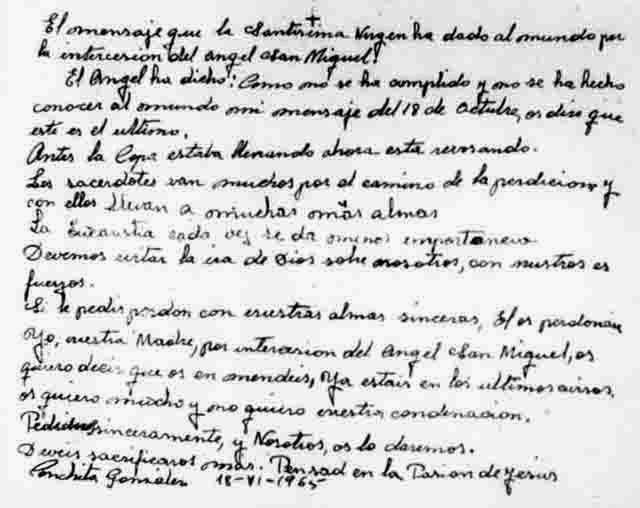 El mensaje que la Santisima Virgen ha dado al mundo por
la intercesion del angel San Miguel!
El Angel ha dicho: Como no se ha cumplido y no se ha hecho
conocer al mundo mi mensaje del 18 de Octubre, os dire que
este es el ultimo.
Antes la Copa estaba llenando ahora esta revosando.
Los sacerdotes van muchos por el camino de la perdicion y
con ellos llevan a muchas mas almas
La Eucaristia cada vez se da menos importancia
Devemos evitar la ira de Dios sobre nosotros, con nuestros es
fuerzos.
Si le pedis perdon con vuestras almas sinceras, El os perdonara
Yo, vuestra Madre, por intercesion del Angel San Miguel, os
quiero decir que os en mendeis, Ya estais en los ultimos avisos.
os quiero mucho y no quiero vuestra condenacion.
Pedidnos sinceramente, y Nosotros, os lo daremos.
Deveis sacrificaros mas. Pensad en la Pasion de Jesus
Conchita Gonzalez 18-VI-1965